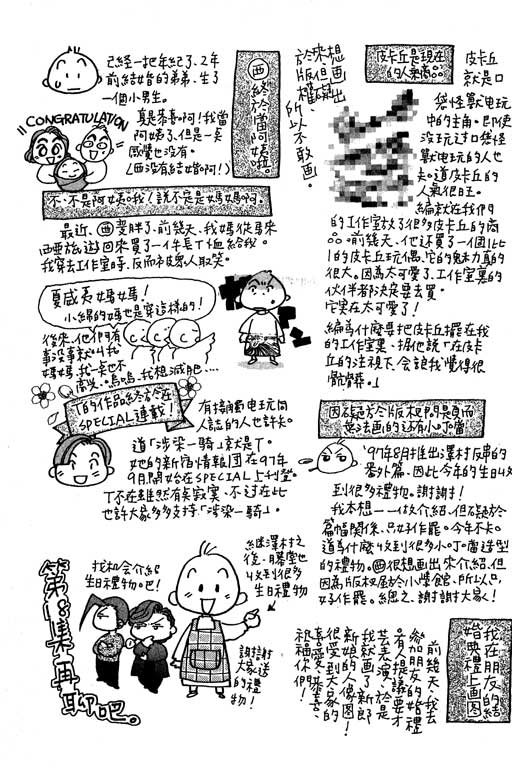 皮卡丘是現在
的人氣商品
皮卡丘
就是口
袋怪獸電玩
中的主角。即使
沒玩过口袋怪
獸電玩的人也
卡。道皮卡丘的
人氣很旺。
編就在我們
的工作室放了很多皮卡丘的商
品。前幾天、他还買了一個1比
1的皮卡丘玩偶、它的魅力真的
很大。因為太可愛了、工作室裏的
伙伴都決定要去買。
它实在太可愛了！
編為什麼要把皮卡丘擺在我
的工作室裏、据他說「在皮卡
丘的注視下、会讓我覺得很
骯髒。」
想画
出來、但碍
於版權
所以不敢画。
因礙於版權問題而
無法画的还有小叮噹
'97年8月推出澤村兄弟的
番外篇、因此今年的生日收
到很多禮物。謝謝！
我本想一一做介紹、但礙於
篇幅関係、只好作罷。今年不卡。
道為什麼收到很多小叮噹造型
的禮物。西很想画出來介紹、但
因為版權屬於小學館、所以只
好作罷。總之、謝謝大家！
我在朋友的結
婚典禮上画图
前幾天、我去
參加朋友的婚禮
有人提議要才
芸表演、於是
我就画了新郎
新娘的人像图！
很受到大家的
喜愛、恭喜、
祝福你們！
西終於當阿姨啦。
己經一把年紀了、2年
前結婚的弟弟、生了
一個小男生。
真是恭喜啊！我當
阿姨了、但是一点
感覺也没有。
（西没有結婚啊！）
CONGRATULATION
不、不是阿姨。哦！說不定是媽媽啊。
最近、西变胖了。前幾天、我媽從馬來
西亞旅遊回來買了一件長T恤給我。
我穿去工作室時、反而被眾人取笑。
夏威夷媽媽！
小錦的媽也是穿這樣的！
後來、他們有
事没事就叫我
媽媽、我一点也不
高兴。嗚嗚、我想減肥….
T的作品終於在
SPECIAL連載！
有接觸电玩同
人誌的人也許卡。
道「涉染一騎」就是T。
她的新宿情報团在97年
9月開始在SPECIAL上刊登。
T不在雖然有点寂寞、不过在此
也許大家多多支持「涉染一騎」。
找机会介紹
生日禮物吧！
繼澤村之
後、騰堂也
收到很多
生日禮物
謝謝
大家送
的禮
物！
第18集再聊吧。